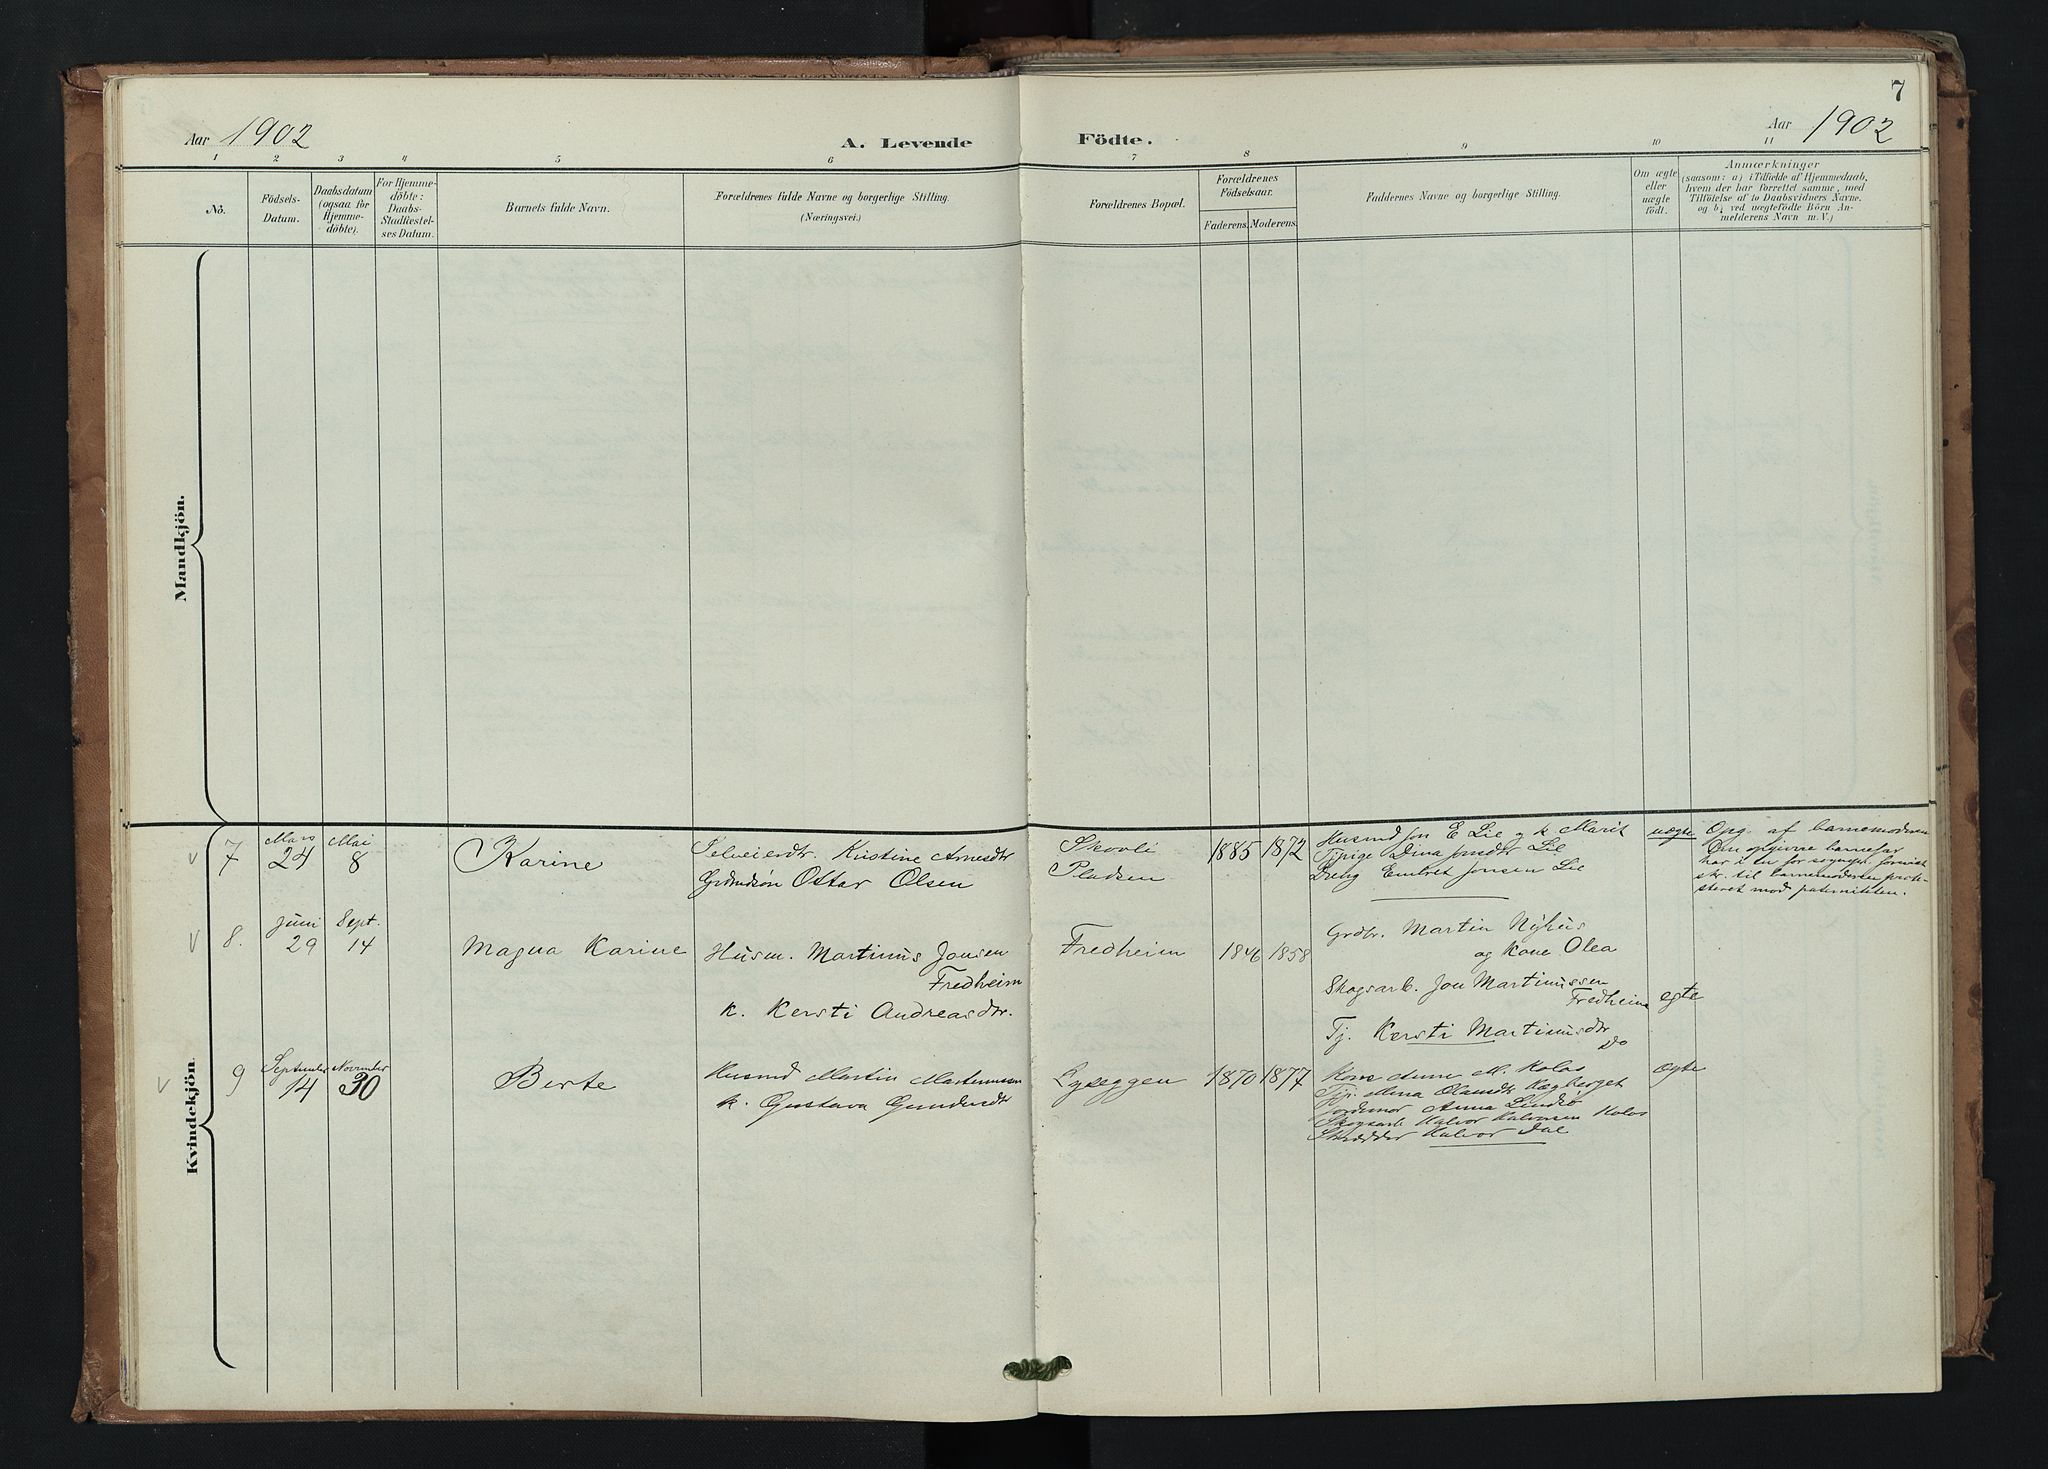 7
Aar 1902
A. Levende
Födte.
Aar 1902
1 2 3 4 5 6 7 8 9 10 11
No.
Födsels-
Datum.
Daabsdatum
(ogsaa for
Hjemme-
döbte).
For Hjemme-
döbte:
Daabs-
Stadfæstel-
ses Datum.
Barnets fulde Navn.
Forældrenes fulde Navne og borgerlige Stilling.
(Næringsvei.)
Forældrenes Bopæl.
Forældrenes
Födselsaar.
Faderens. Moderens.
Faddernes Navne og borgerlige Stilling.
Om ægte
eller
uægte
födt.
Anmærkninger
(saasom: a) i Tilfælde af Hjemmedaab,
hvem der har forrettet samme, med
Tilföielse af to Daabsvidners Navne.
og b, ved uægtefödte Börn An-
melderens Navn m. V.)
Mandkjön.
Kvindekjön.
7
Mars
24
Mai
8
Karine
Selveierdtr. Kristine Arnesdtr
Grdmdsøn Ottar Olsen
Skovli
Pladsen
1885 1872
Husmd Jon E Lie og k Marit
Tjpige Dina Jonsdtr Lie
Dreng Embret Jonsen Lie
uægte
Opg. af barnemoderen
Den opgivne barnefar
har i for sognepr.
skr. til barnemoderen prote-
steret mod paterniteten.
8.
Juni
29
Sept.
14
Magna Karine
Husm. Martinus Jonsen
Fredheim
k. Kersti Andreasdtr.
Fredheim
1846 1858
Grdbr. Martin Nyhus
og Kone Olea
Skogsarb. Jon Martinussen
Fredheim
Tj. Kersti Martinusdtr
Do
egte
9
September
14
November
30
Berte
Husmd Martin Martinussen
k. Gustava Gundersdtr
Lyseggen
1870 1877
Kone Anne M. Kolos
Tjp. Mina Olausdtr Kægberget
Jordemor Anna Lindsö
Skogsarb Halvor Halvorsen Kolos
Skrædder Halvor Dal
ægte